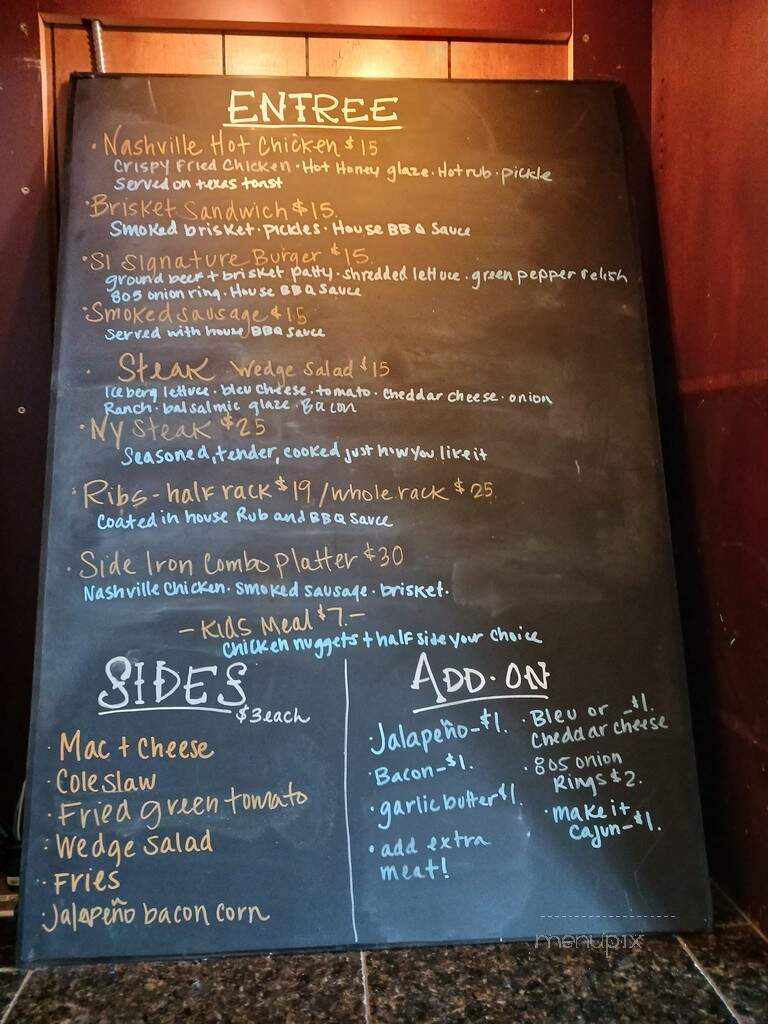 ENTREE
· Nashville Hot Chicken $15
Crispy Fried Chicken · Hot Honey glaze · Hot rub · pickle
Served on texas toast
· Brisket Sandwich $15.
Smoked brisket · pickles · House BBQ Sauce
· SI Signature Burger $15.
ground beef + brisket patty · shredded lettuce · green pepper relish
805 onion ring · House BBQ Sauce
· Smoked sausage $15
Served with house BBQ sauce
· Steak Wedge Salad $15
Iceberg lettuce · bleu cheese · tomato · cheddar cheese · onion
Ranch · balsalmic glaze · Bacon
· NY Steak $25
Seasoned, tender, cooked just how you like it
· Ribs - half rack $19 / whole rack $25.
Coated in house Rub and BBQ Sauce
· Side Iron Combo Platter $30
Nashville Chicken · smoked sausage · brisket.
- Kids Meal $7. -
chicken nuggets + half side your choice
SIDES
$3 each
· Mac + Cheese
· Coleslaw
· Fried green tomato
· Wedge Salad
· Fries
· Jalapeño bacon corn
ADD·ON
· Jalapeño - $1.
· Bacon - $1.
· garlic butter $1.
· add extra
meat!
· Bleu or - $1.
Cheddar cheese
· 805 onion
Rings $2.
· make it
cajun - $1.
menupix